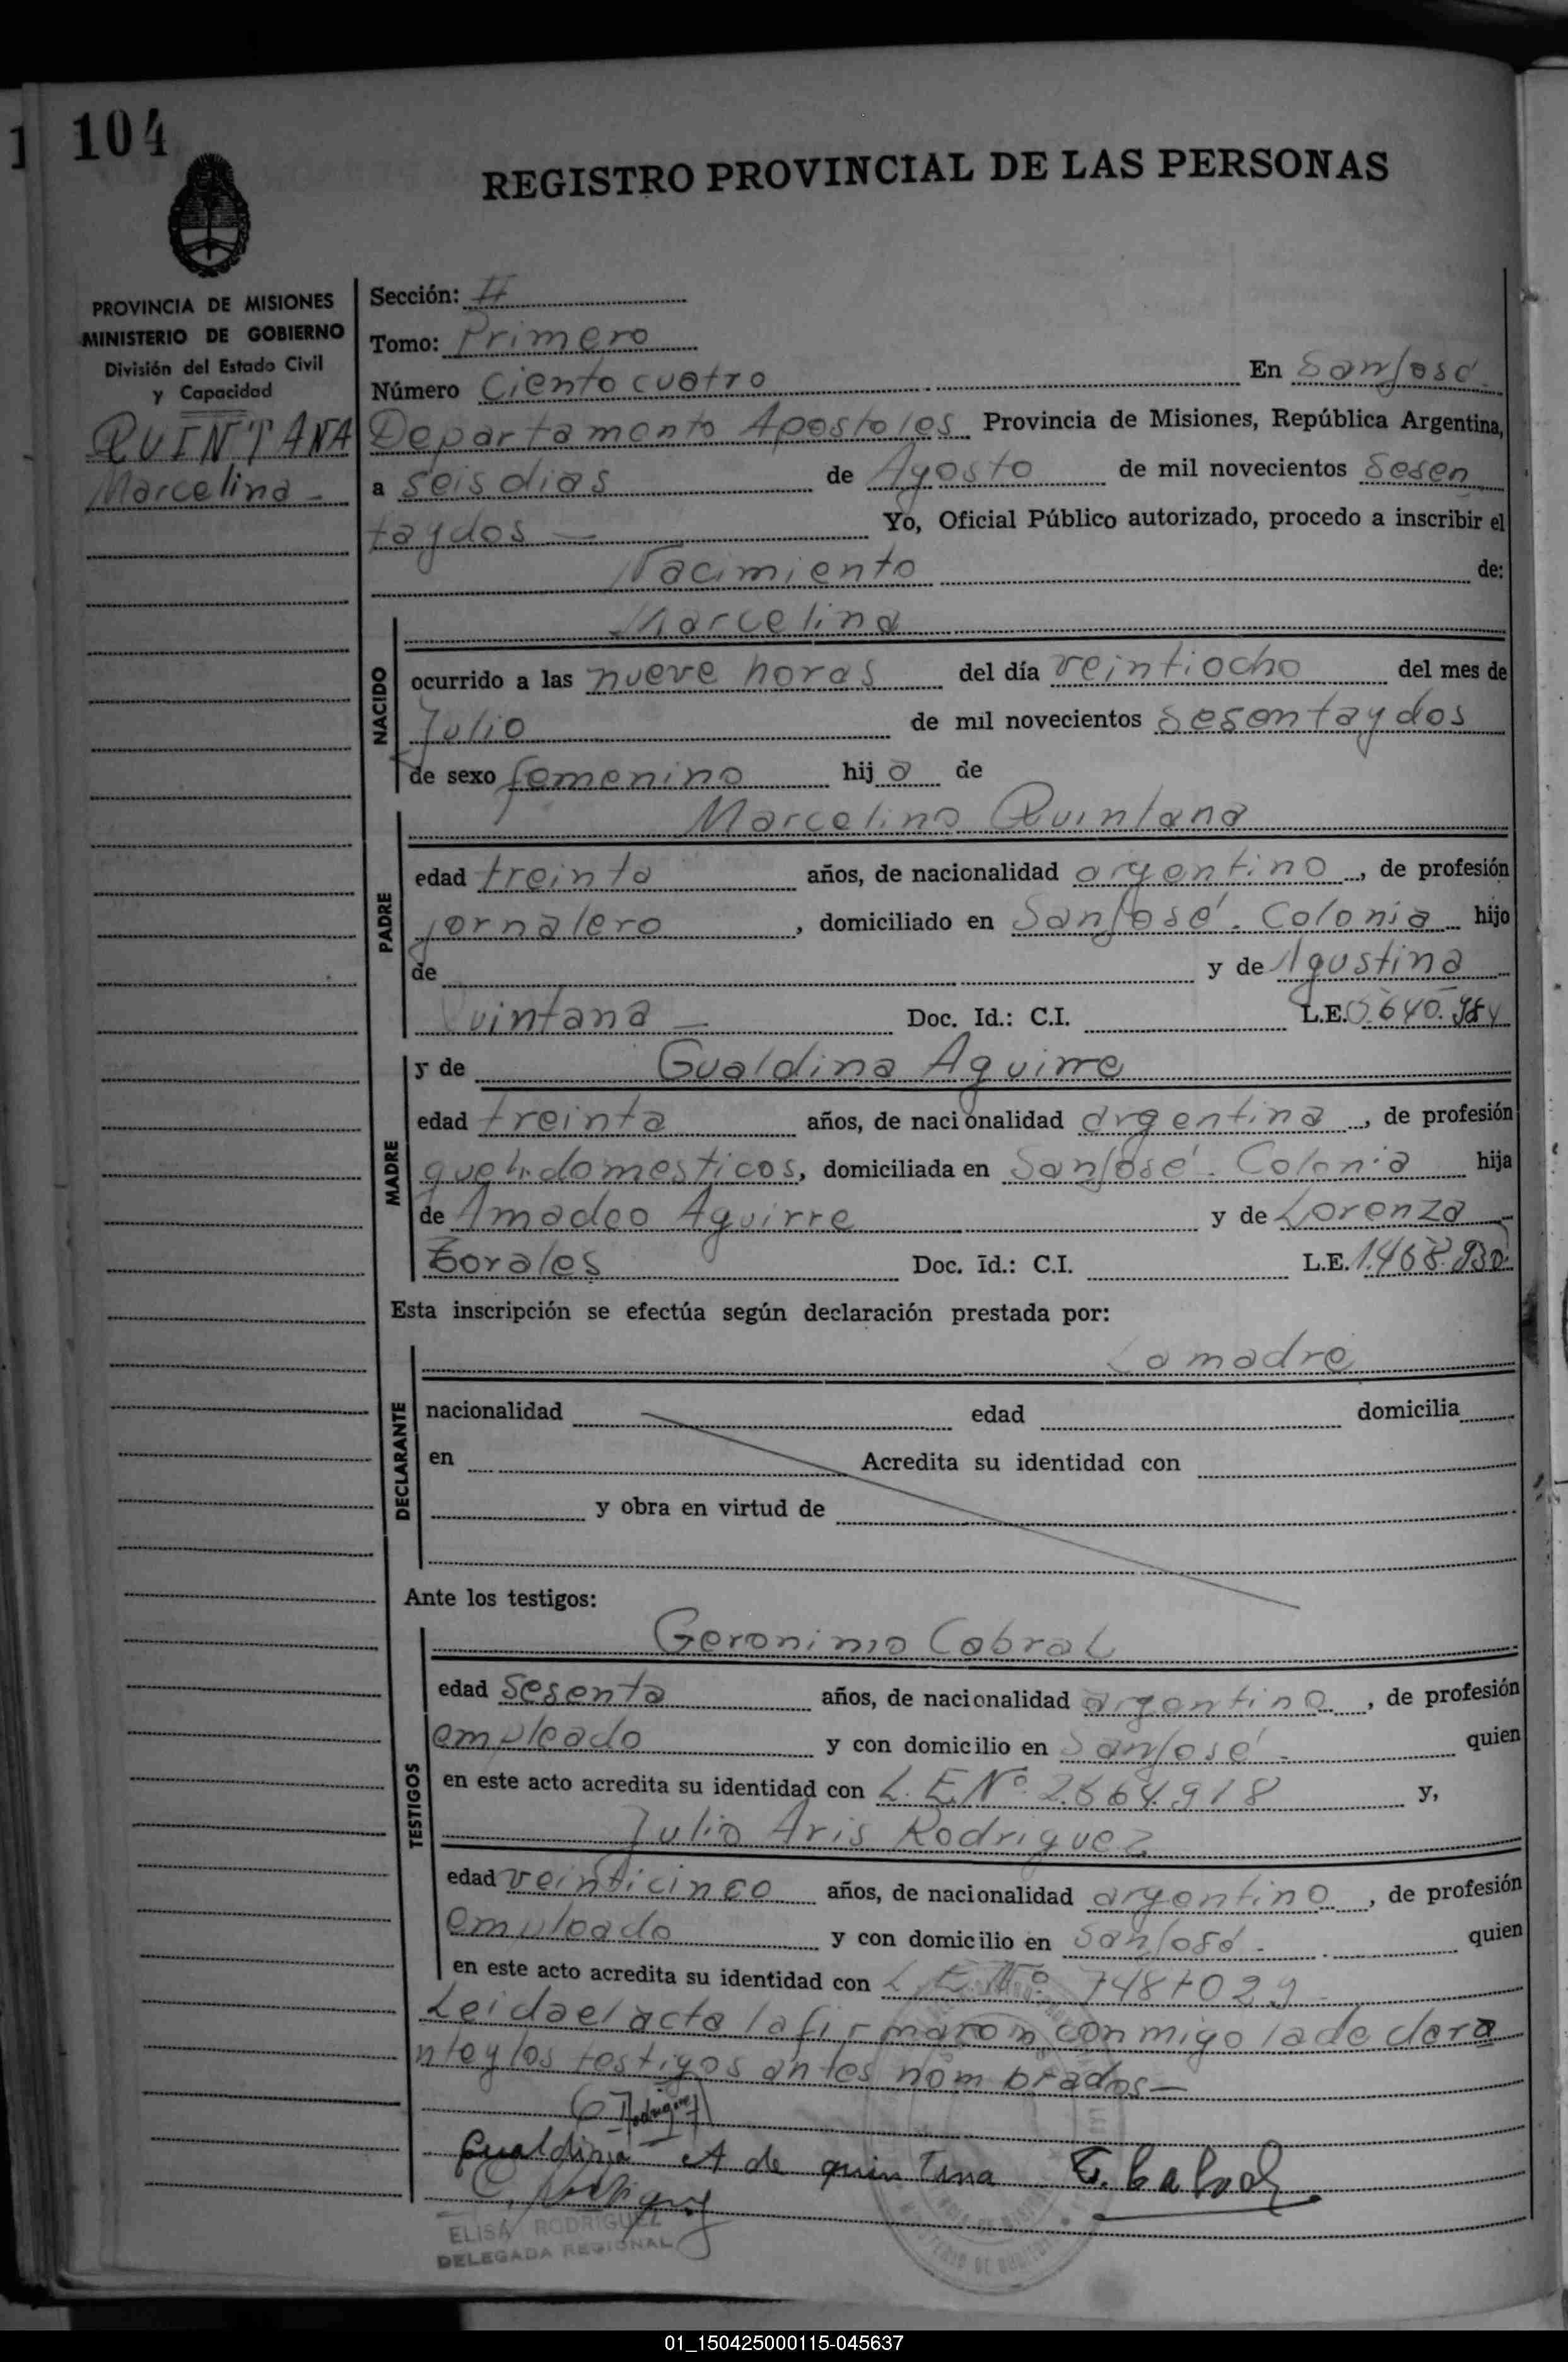 104
REGISTRO PROVINCIAL DE LAS PERSONAS
PROVINCIA DE MISIONES
MINISTERIO DE GOBIERNO
División del Estado Civil
y Capacidad
QUINTANA
Marcelina -
Sección: II
Tomo: Primero
Número Ciento cuatro En San José
Departamento Apostoles Provincia de Misiones, República Argentina,
a seis dias de Agosto de mil novecientos sesen
taydos — Yo, Oficial Público autorizado, procedo a inscribir el
Nacimiento de:
Marcelina
NACIDO
ocurrido a las nueve horas del día veintiocho del mes de
Julio de mil novecientos sesentaydos
de sexo femenino hij a de
Marcelino Quintana
PADRE
edad treinta años, de nacionalidad argentino, de profesión
jornalero, domiciliado en San José. Colonia hijo
de y de Agustina
Quintana — Doc. Id.: C.I. L.E.
y de Gualdina Aguirre
MADRE
edad treinta años, de nacionalidad argentina, de profesión
queh.domesticos, domiciliada en San José. Colonia hija
de Amadeo Aguirre y de Lorenza
Zorales Doc. Id.: C.I. L.E. 1.468.930
Esta inscripción se efectúa según declaración prestada por:
La madre
DECLARANTE
nacionalidad edad domicilia
en Acredita su identidad con
y obra en virtud de
Ante los testigos:
Geronimo Cabral
TESTIGOS
edad sesenta años, de nacionalidad argentino, de profesión
empleado y con domicilio en San José - quien
en este acto acredita su identidad con L.E.Nº 2.664.918 y,
Julio Aris Rodriguez
edad veinticinco años, de nacionalidad argentino, de profesión
empleado y con domicilio en San José - quien
en este acto acredita su identidad con L.E.Nº 7487029 -
Leida el acta la firmaron conmigo la declara
nte y los testigos antes nombrados—
Rodriguez
Gualdina A de quintana G. Cabral
ELISA RODRIGUEZ
DELEGADA REGIONAL
01_150425000115-045637